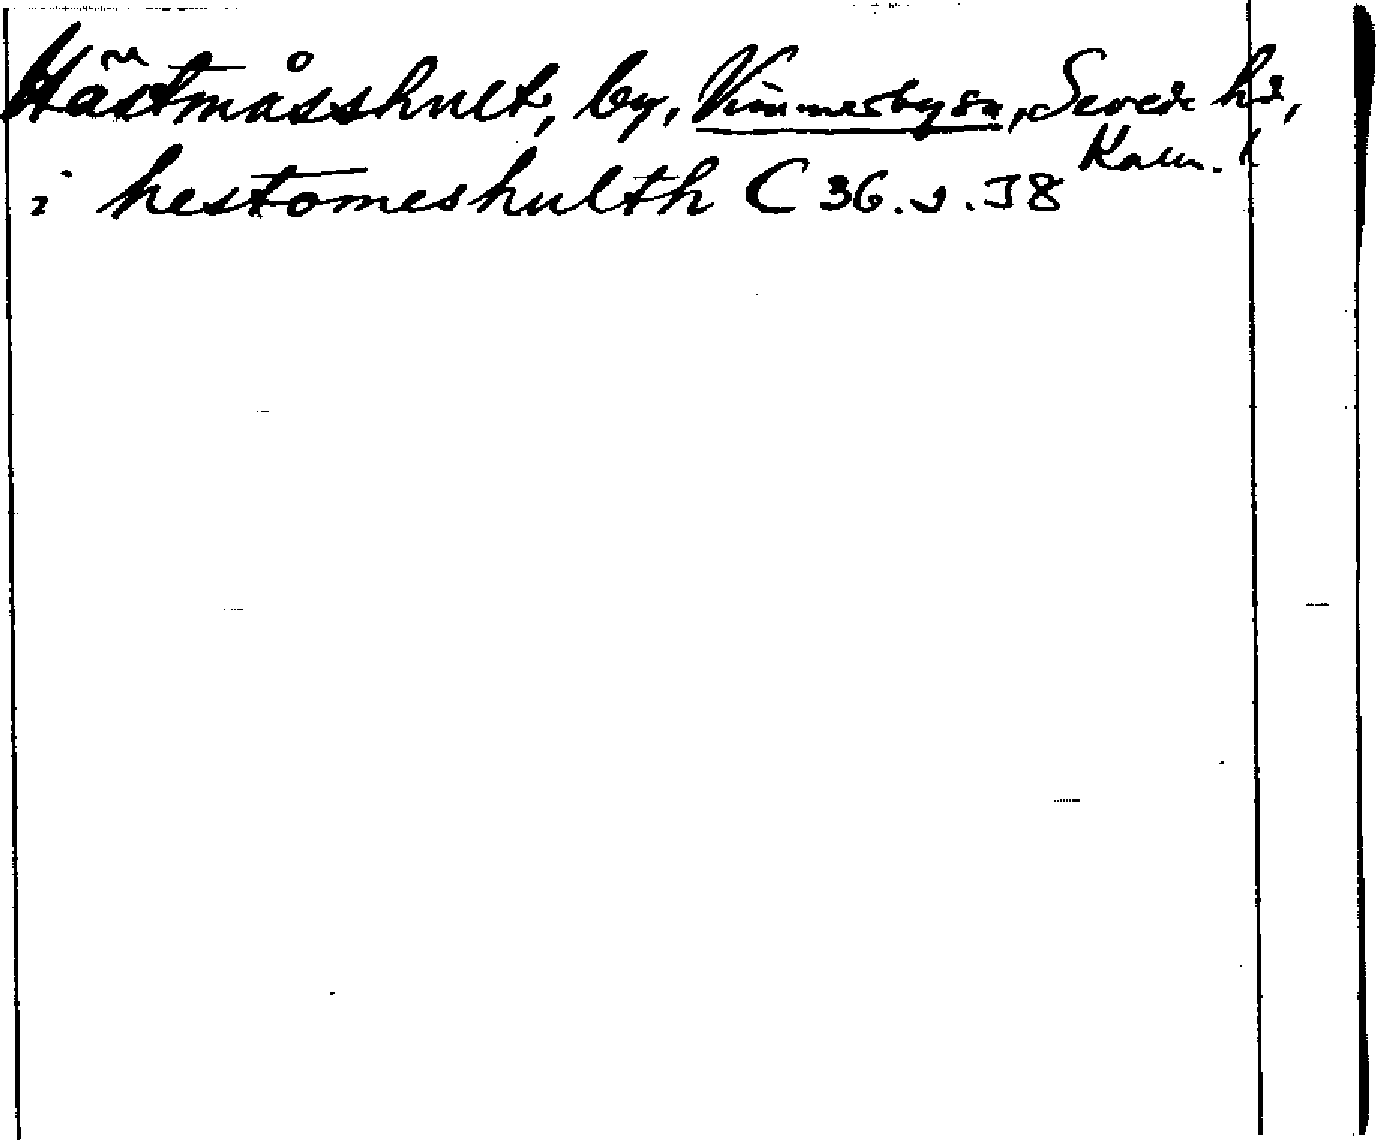 Hästmåsshult, by, Vimmerby sn, Sevede hd,
Kalm. l
i hestomeshulth C 36.s.38